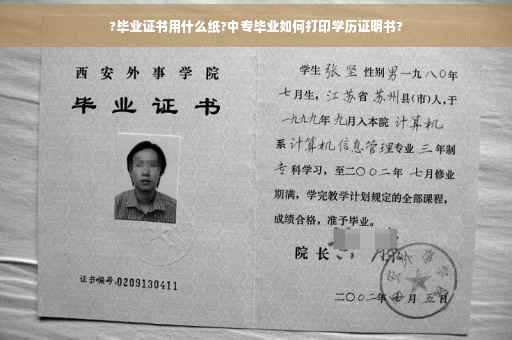 ?毕业证书用什么纸?中专毕业如何打印学历证明书?
西安外事学院
毕业证书
证书编号:0209130411
学生 张坚 性别 男 一九八〇年
七月生, 江苏省 苏州县(市)人,于
一九九九年 九月入本院 计算机
系 计算机信息管理专业 三 年制
专科学习, 至二〇〇二年 七月修业
期满, 学完教学计划规定的全部课程,
成绩合格, 准予毕业。
院长
二〇〇二年 月 五日